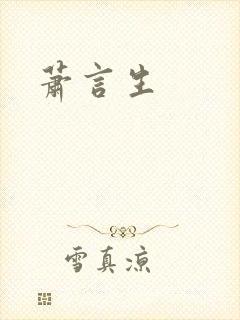 萧言生
雪真凉